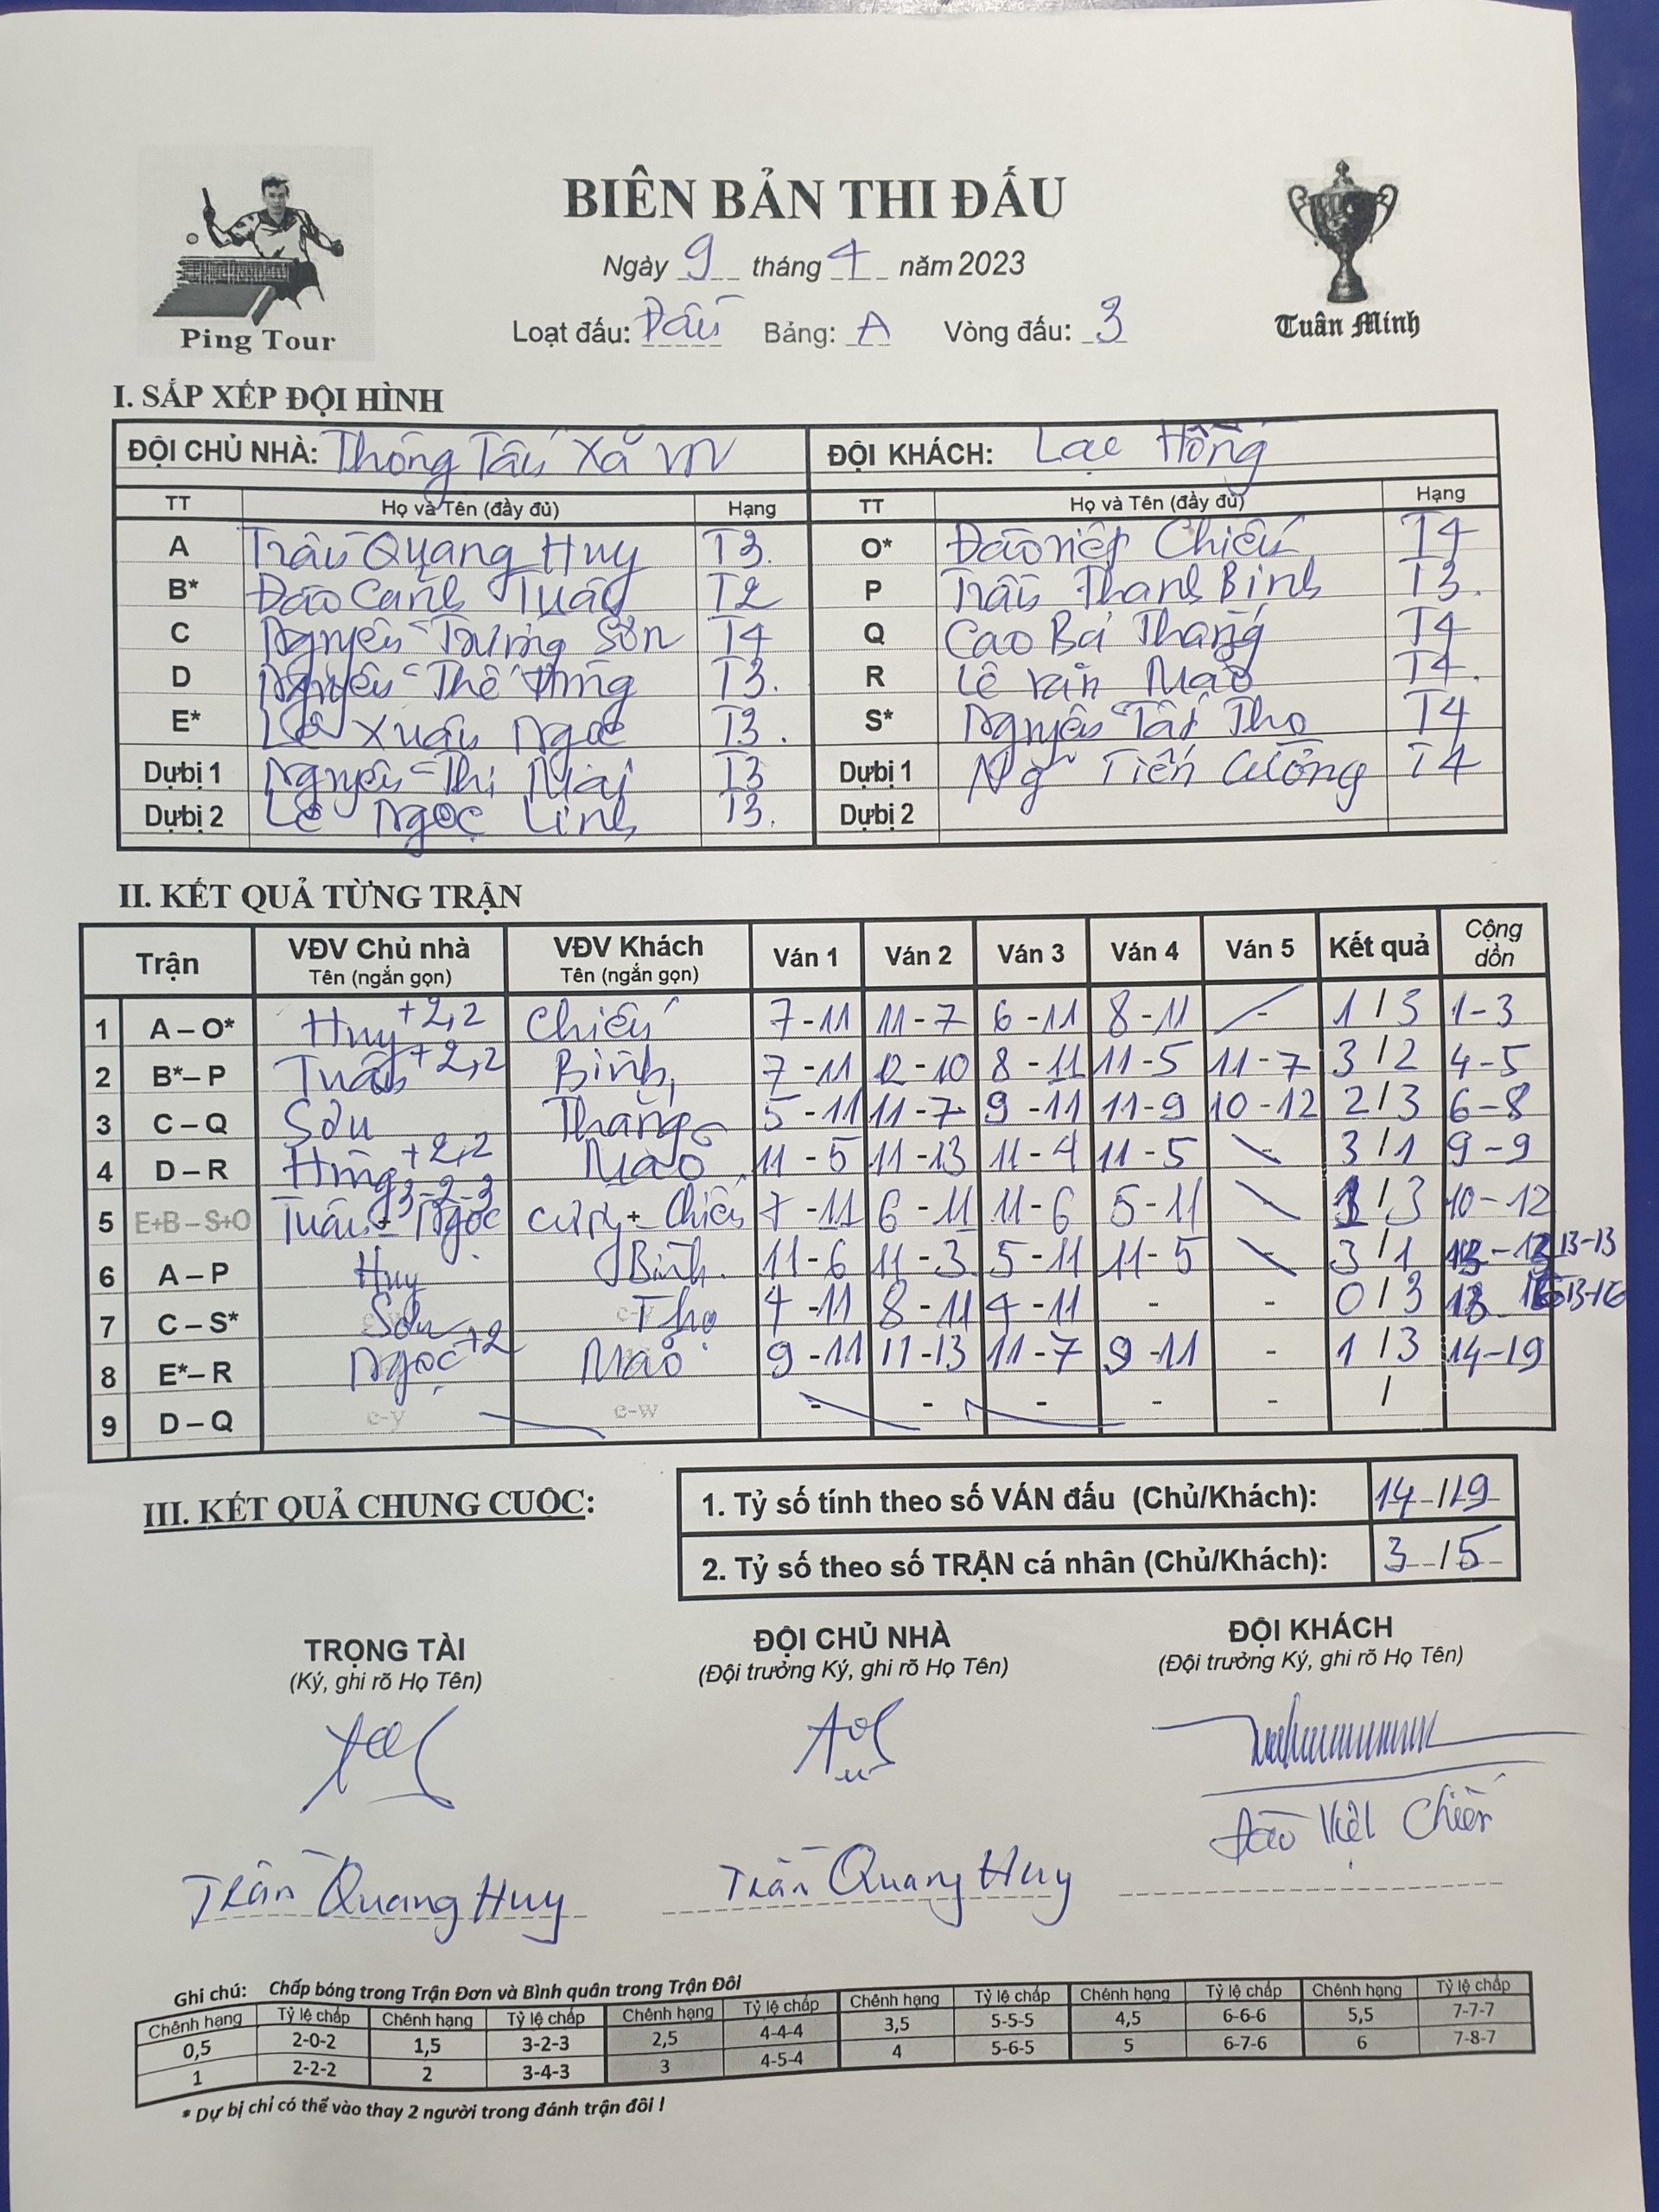 BIÊN BẢN THI ĐẤU
Ngày 9 tháng 4 năm 2023
Loạt đấu: Đấu Bảng: A Vòng đấu: 3
Ping Tour
Tuấn Minh
I. SẮP XẾP ĐỘI HÌNH
ĐỘI CHỦ NHÀ: Thông Tấn Xã VN ĐỘI KHÁCH: Lạc Hồng
TT Họ và Tên (đầy đủ) Hạng TT Họ và Tên (đầy đủ) Hạng
A Trần Quang Huy T3. O* Đào Việt Chiến T4
B* Đào Cảnh Tuấn T2 P Trần Thanh Bình T3.
C Nguyễn Trường Sơn T4 Q Cao Bá Thắng T4
D Nguyễn Thế Hùng T3. R Lê Văn Mão T4.
E* Lê Xuân Ngọc T3. S* Nguyễn Tất Thọ T4
Dự bị 1 Nguyễn Thị Mai T3 Dự bị 1 Ng Tiến Cường T4
Dự bị 2 Lê Ngọc Linh T3. Dự bị 2
II. KẾT QUẢ TỪNG TRẬN
Trận VĐV Chủ nhà Tên (ngắn gọn) VĐV Khách Tên (ngắn gọn) Ván 1 Ván 2 Ván 3 Ván 4 Ván 5 Kết quả Cộng dồn
1 A – O* Huy +2,2 Chiến 7-11 11-7 6-11 8-11 - 1/3 1-3
2 B* – P Tuấn +2,2 Bình 7-11 12-10 8-11 11-5 11-7 3/2 4-5
3 C – Q Sơn Thắng 5-11 11-7 9-11 11-9 10-12 2/3 6-8
4 D – R Hùng +2,2 Mão 11-5 11-13 11-4 11-5 - 3/1 9-9
5 E+B – S+O Tuấn + Ngọc 3-2-3 Cường + Chiến 7-11 6-11 11-6 5-11 - 1/3 10-12
6 A – P Huy Bình. 11-6 11-3 5-11 11-5 - 3/1 13-13
7 C – S* Sơn Thọ 4-11 8-11 4-11 - - 0/3 13-16
8 E* – R Ngọc +2 Mão 9-11 11-13 11-7 9-11 - 1/3 14-19
9 D – Q e-y e-w - - - - - /
III. KẾT QUẢ CHUNG CUỘC:
1. Tỷ số tính theo số VÁN đấu (Chủ/Khách): 14/19
2. Tỷ số theo số TRẬN cá nhân (Chủ/Khách): 3/5
TRỌNG TÀI ĐỘI CHỦ NHÀ ĐỘI KHÁCH
(Ký, ghi rõ Họ Tên) (Đội trưởng Ký, ghi rõ Họ Tên) (Đội trưởng Ký, ghi rõ Họ Tên)
Trần Quang Huy Trần Quang Huy Đào Việt Chiến
Ghi chú: Chấp bóng trong Trận Đơn và Bình quân trong Trận Đôi
Chênh hạng Tỷ lệ chấp Chênh hạng Tỷ lệ chấp Chênh hạng Tỷ lệ chấp Chênh hạng Tỷ lệ chấp Chênh hạng Tỷ lệ chấp Chênh hạng Tỷ lệ chấp
0,5 2-0-2 1,5 3-2-3 2,5 4-4-4 3,5 5-5-5 4,5 6-6-6 5,5 7-7-7
1 2-2-2 2 3-4-3 3 4-5-4 4 5-6-5 5 6-7-6 6 7-8-7
* Dự bị chỉ có thể vào thay 2 người trong đánh trận đôi !